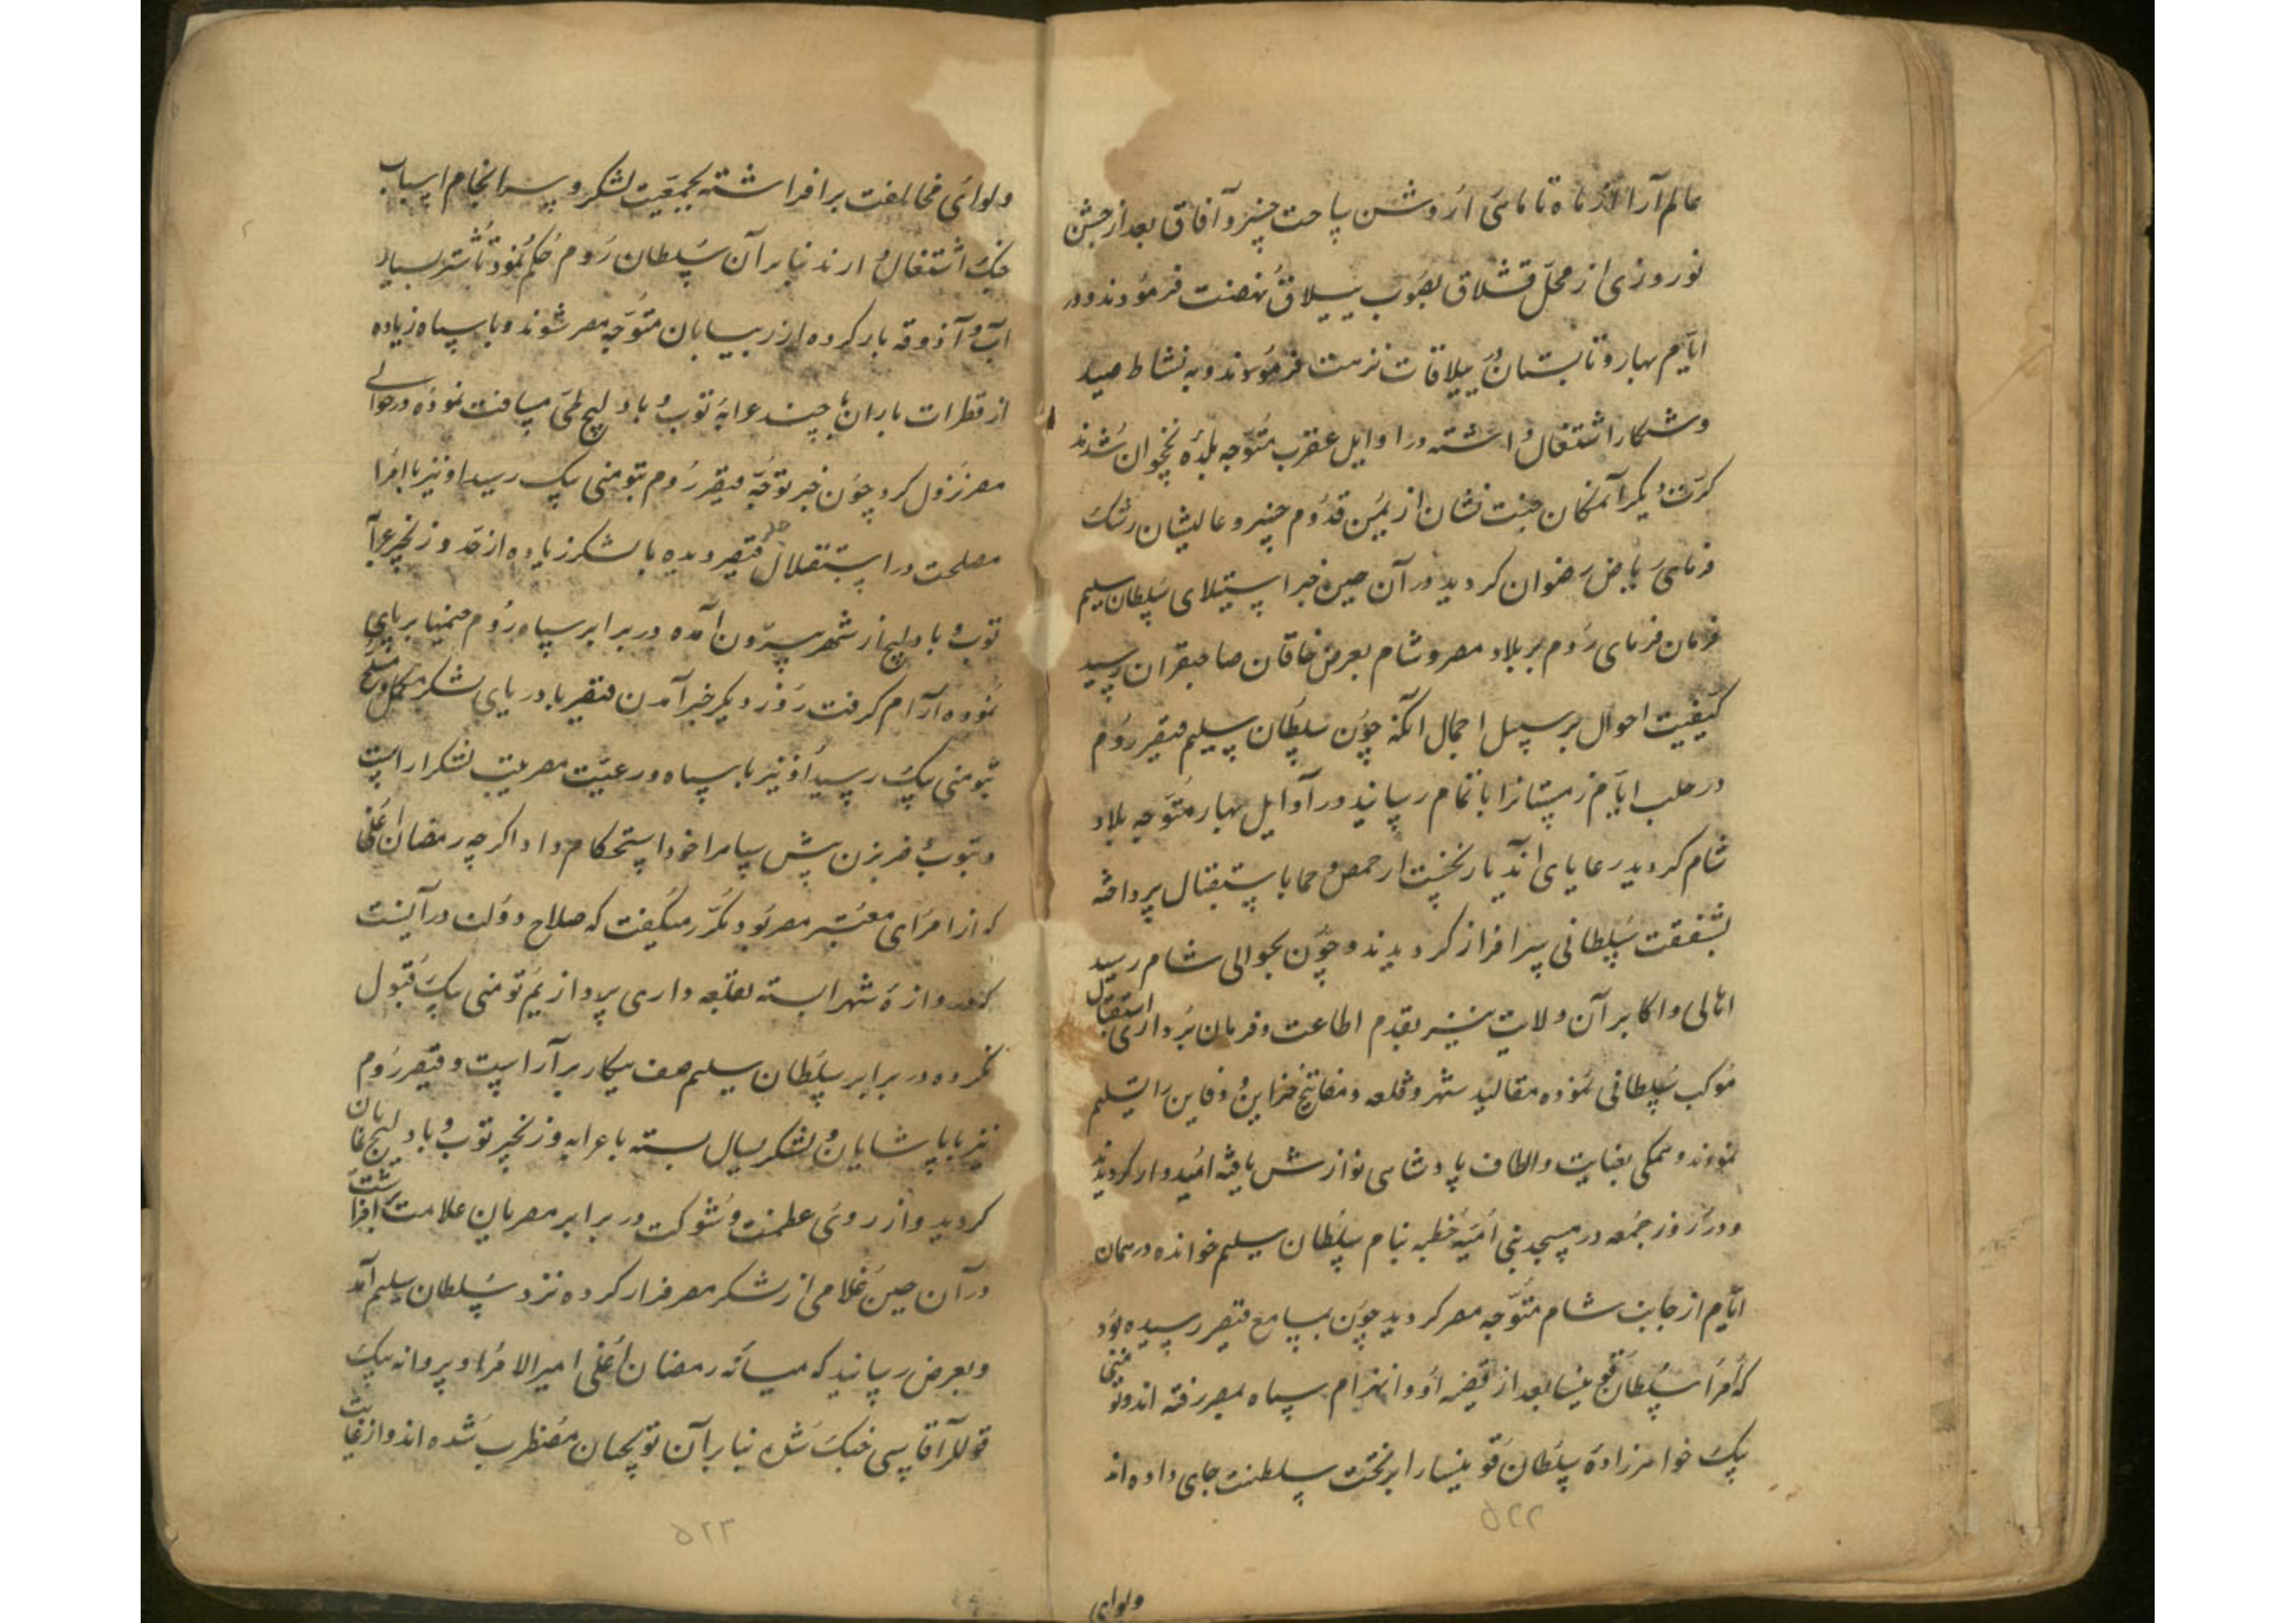 عالم آرا از ماه تا ماهی از روشن ساخت خسرو آفاق بعد از جشن
نوروزی از محل قشلاق بصوب ییلاق نهضت فرمودند و در
ایام بهار و تابستان در ییلاقات نزهت فرمودند و به نشاط صید
و شکار اشتغال داشته در اوایل عقرب متوجه بلده نخچوان شدند
کرت دیگر آنمکان جنت نشان از یمن قدوم خسرو عالیشان رشک
فرمای ریاض رضوان کردید در آن حین خبر استیلای سلطان سلیم
فرمان فرمای روم بر بلاد مصر و شام بعرض خاقان صاحبقران رسید
کیفیت احوال بر سبیل اجمال آنکه چون سلطان سلیم قیصر روم
در حلب ایام زمستانرا باتمام رسانید در اوایل بهار متوجه بلاد
شام کردید رعایای آندیار نخست از حمص و حما باستقبال پرداخته
بشفقت سلطانی سرافراز کردیدند و چون بحوالی شام رسید
اهالی و اکابر آن ولایت نیز بقدم اطاعت و فرمان برداری استقبال
موکب سلطانی نموده مقالید شهر و قلعه و مفاتیح خزاین و دفاین را تسلیم
نمودند و همکی بعنایت و الطاف پادشاهی نوازش یافته امیدوار کردیدند
و در روز جمعه در مسجد بنی امیه خطبه بنام سلطان سلیم خوانده در همان
ایام از جانب شام متوجه مصر کردید چون بمسامع قیصر رسیده بود
که امرا سلطان قوینسا بعد از قضیه او و انهزام سپاه بمصر رفته اند و تومنی
بیک خواهرزاده سلطان قوینسا را بر تخت سلطنت جای داده اند
۵۲۲
ولوای
ولوای مخالفت برافراشته بجمعیت لشکر و سرانجام اسباب
جنک اشتغال دارند بنابر آن سلطان روم حکم نمود تا شتر بسیار
آب و آذوقه بار کرده از ریبیابان متوجه مصر شوند و با سپاه زیاده
از قطرات باران با چند عرابه توپ و بادلیج طی مسافت نموده در حوالی
مصر نزول کرد چون خبر توجه قیصر روم بتومنی بیک رسید او نیز با امرا
مصلحت در استقلال جدل قیصر دیده با لشکر زیاده از حد و زنجیر عرابه
توپ و بادلیج از شهر بیرون آمده در برابر سپاه روم خیمها بر پای
نموده آرام کرفت روز دیگر خبر آمدن قیصر با دریای لشکر مکمل و مسلح
بتومنی بیک رسید او نیز با سپاه و رعیت مصر ترتیب لشکر آراست
و بتوپ ضربزن پیش سپاه را خود استحکام داد اگرچه رمضان اغلی
که از امرای معتبر مصر بود مکرر میکفت که صلاح دولت در آنست
که دروازه شهر را بسته بقلعه داری پردازیم تومنی بیک قبول
نکرده در برابر سلطان سلیم صف پیکار برآراست و قیصر روم
نیز با پاشایان و لشکر یسال بسته با عرابه و زنجیر توپ و بادلیج نمایان
کردید و از روی عظمت و شوکت در برابر مصریان علامت برافراشت
در آن حین غلامی از لشکر مصر فرار کرده نزد سلطان سلیم آمد
و بعرض رسانید که میانه رمضان اغلی امیرالامرا و پروانه بیک
قوللر آقاسی جنک شده بنابر آن توپچیان مضطرب شده اند و از غایت
۵۲۳